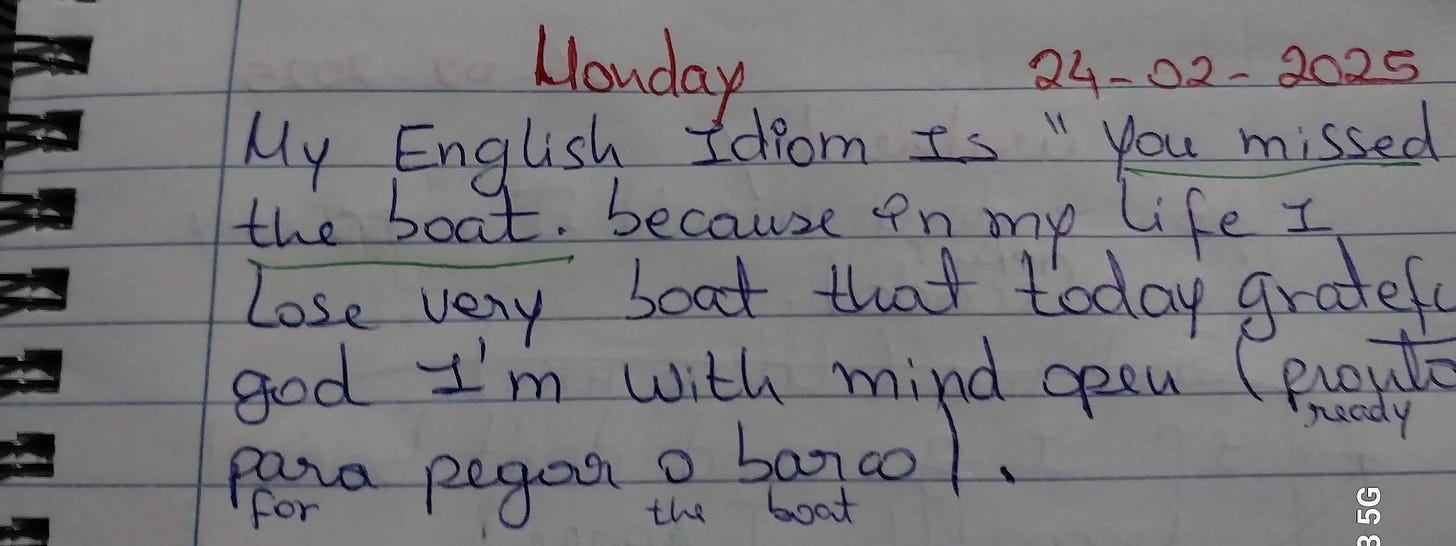 Monday 24-02-2025
My English Idiom Is " you missed
the boat. because in my life I
Lose very boat that today gratefu
god I'm with mind open (pronto
ready
para pegar o barco).
for the boat
3 5G